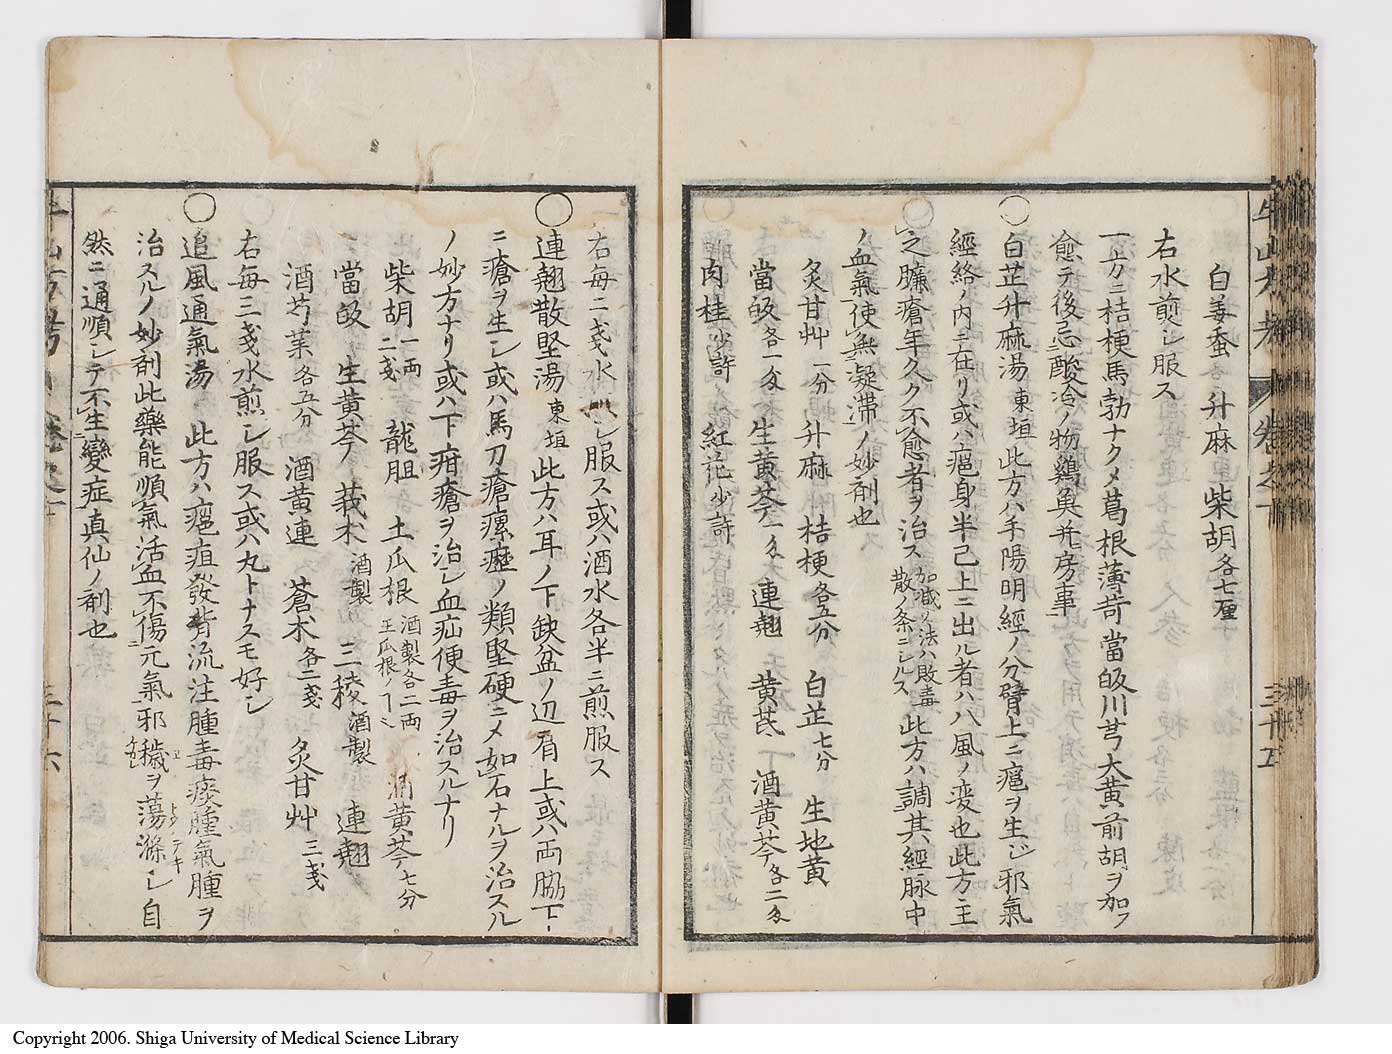 白姜蚕 升麻 柴胡各七厘
右水煎シ服ス
一方ニ桔梗馬勃ナクメ葛根薄苛當皈川芎大黄前胡ヲ加フ
愈テ後忌酸冷ノ物鷄魚并房事
○白芷升麻湯東垣 此方ハ手陽明經ノ分臂上ニ瘡ヲ生シ邪氣
經絡ノ内ニ在リ或ハ瘡身半已上ニ出ル者ハ八風ノ変也此方主
之臁瘡年久ク不愈者ヲ治ス加减ノ法ハ敗毒散ノ条ニシルス此方ハ調其經脉中
ノ血氣使無凝滞ノ妙剤也
炙甘艸一分 升麻 桔梗各五分 白芷七分 生地黄
當皈各一匁 生黄芩二匁 連翹 黄芪 酒黄芩各二匁
肉桂少許 紅花少許
右毎二戔水煎シ服ス或ハ酒水各半ニ煎服ス
○連翹散堅湯東垣 此方ハ耳ノ下缺盆ノ辺肩上或ハ両脇下
ニ瘡ヲ生シ或ハ馬刀瘡瘰癧ノ類堅硬ニメ如石ナルヲ治スル
ノ妙方ナリ或ハ下疳瘡ヲ治シ血疝便毒ヲ治スルナリ
柴胡一両二戔 龍胆 土瓜根酒製各二両王瓜根ノ 酒黄芩七分
當皈 生黄芩 莪朮酒製 三稜酒製 連翹
酒芍薬各五分 酒黄連 蒼朮各二戔 炙甘艸三戔
右毎三戔水煎シ服ス或ハ丸トナスモ好シ
○追風通氣湯 此方ハ癰疽發背流注腫毒痰腫氣腫ヲ
治スルノ妙剤此藥能順氣活血不傷元氣邪穢ヲ蕩滌シ自
然ニ通順シテ不生變症真仙ノ剤也
Copyright 2006. Shiga University of Medical Science Library